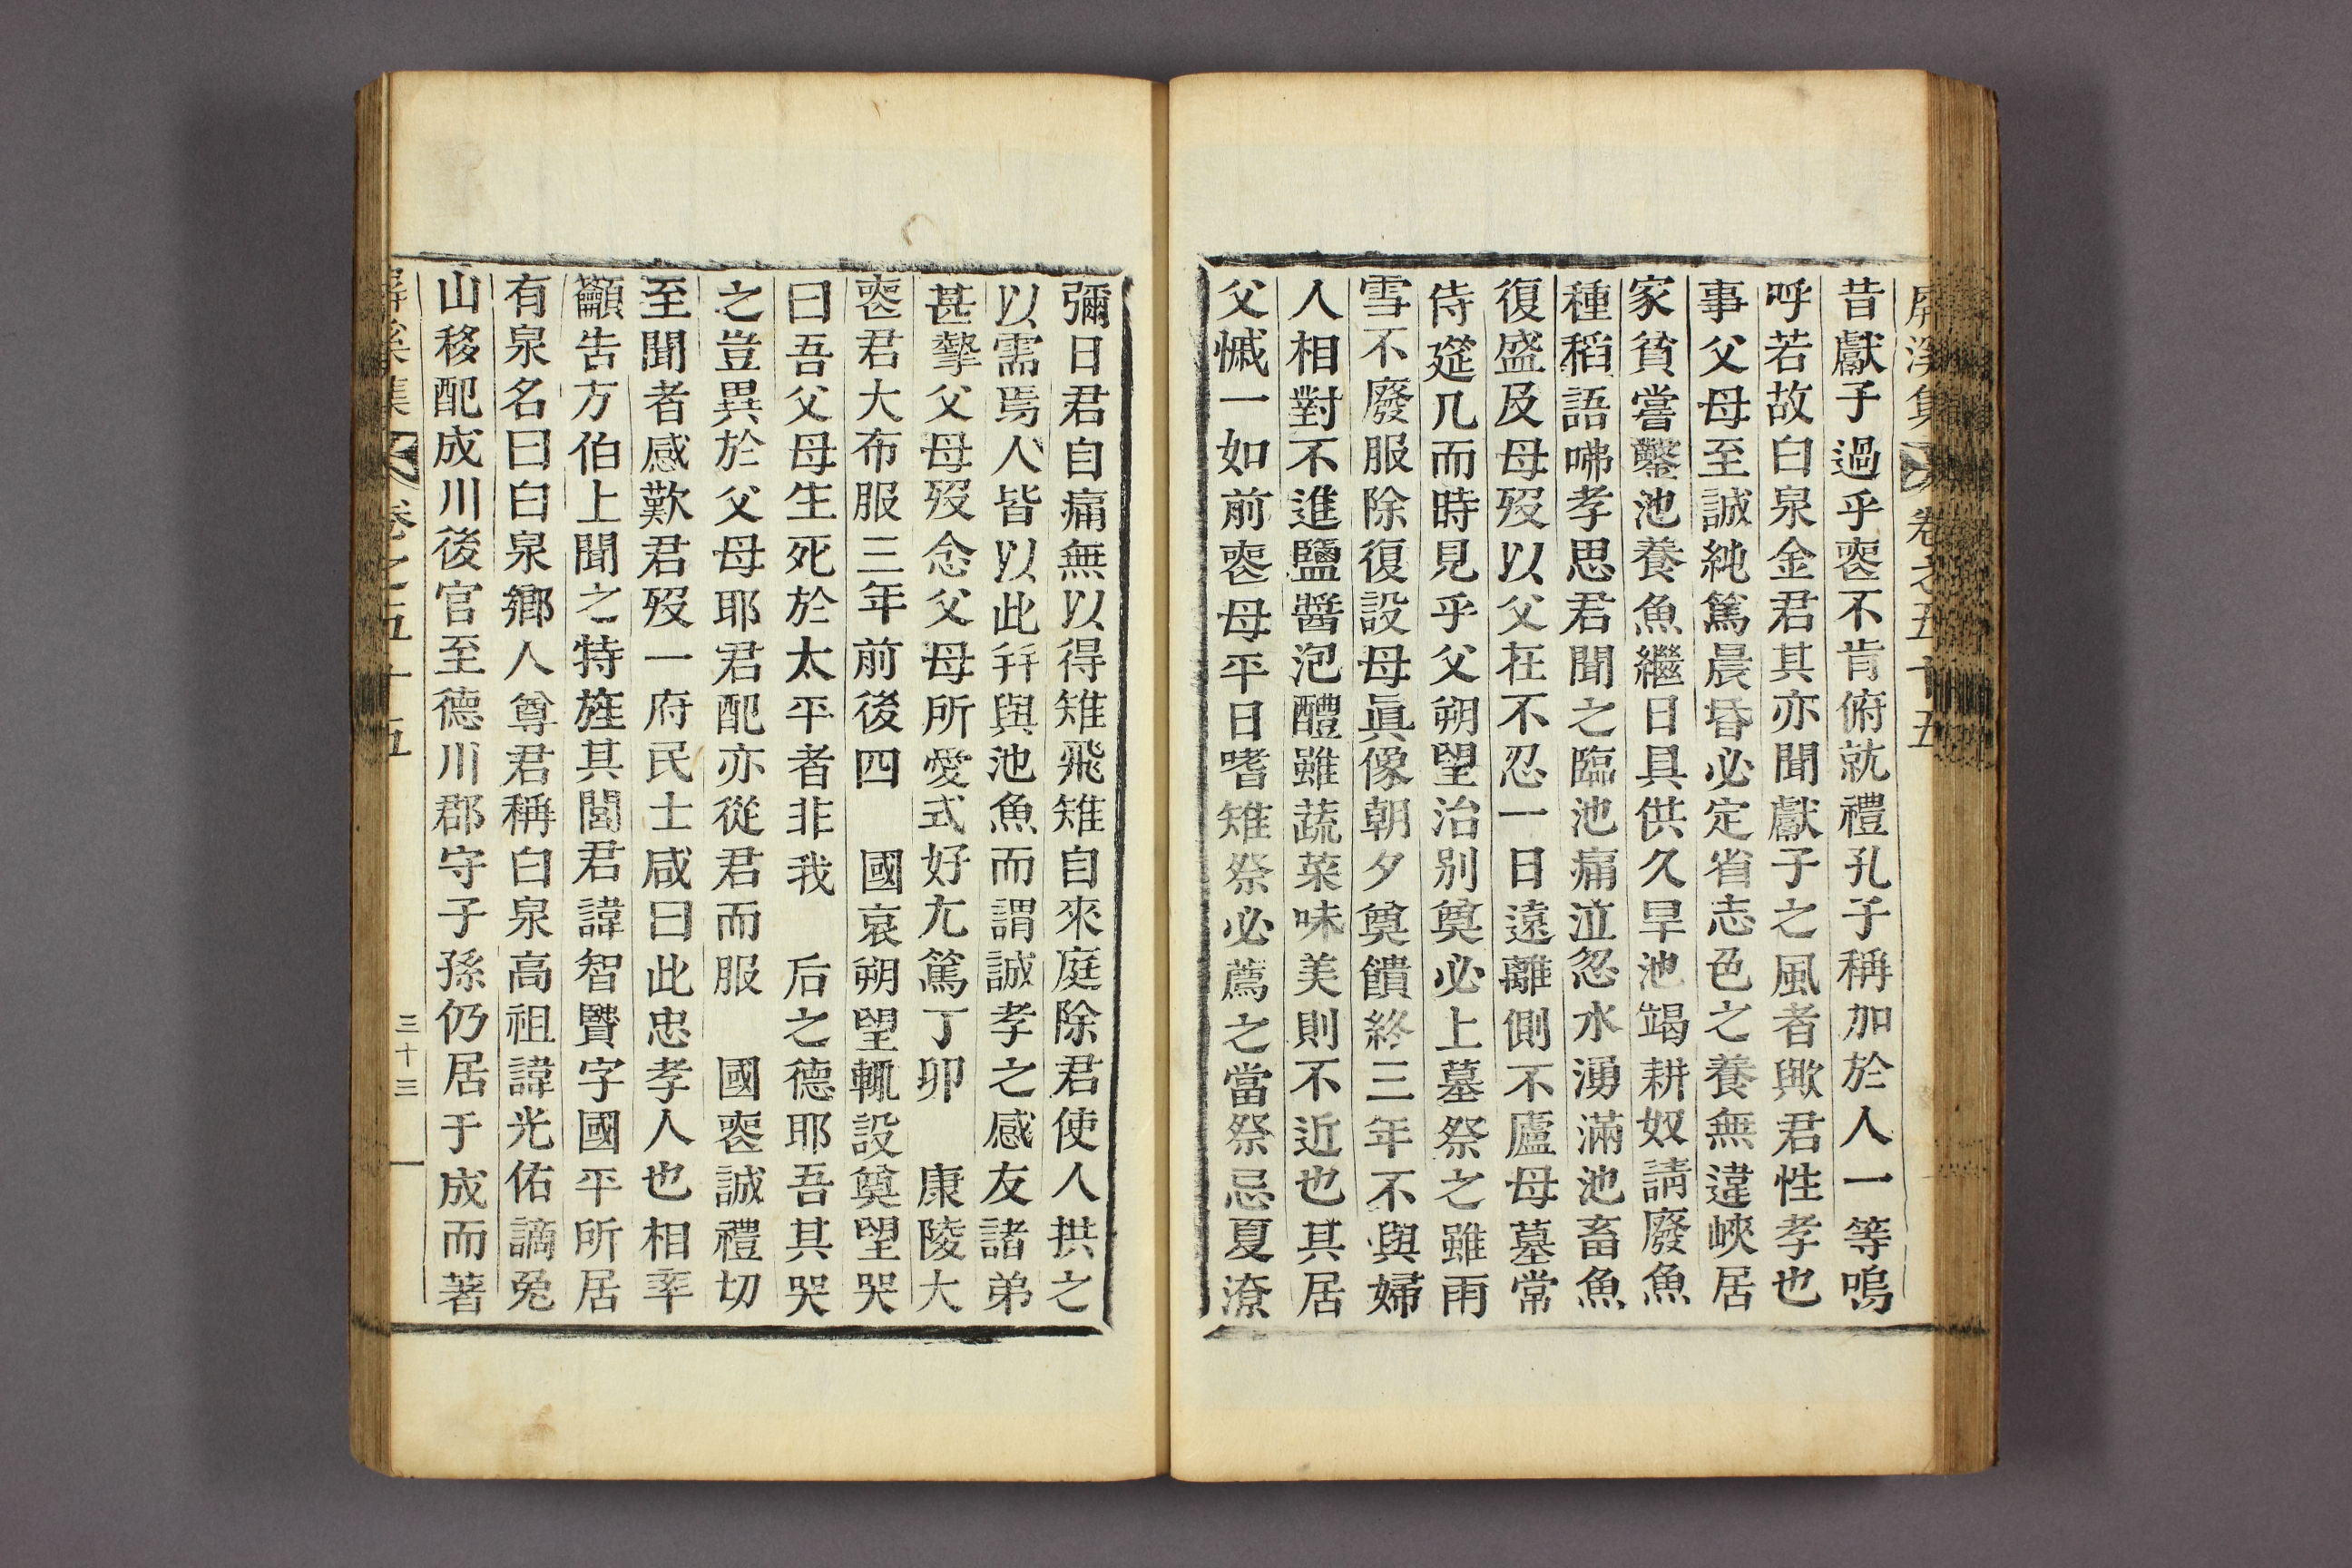 屏溪集 卷之五十五
昔獻子過乎喪不肯俯就禮孔子稱加於人一等嗚
呼若故白泉金君其亦聞獻子之風者歟君性孝也
事父母至誠純篤晨昏必定省志色之養無違峽居
家貧嘗鑿池養魚繼日具供久旱池竭耕奴請廢魚
種稻語咈孝思君聞之臨池痛泣忽水湧滿池畜魚
復盛及母歿以父在不忍一日遠離側不廬母墓常
侍筵几而時見乎父朔望治别奠必上墓祭之雖雨
雪不廢服除復設母眞像朝夕奠饋終三年不與婦
人相對不進鹽醬泡醴雖蔬菜味美則不近也其居
父慽一如前喪母平日嗜雉祭必薦之當祭忌夏潦
彌日君自痛無以得雉飛雉自來庭除君使人拱之
以需焉人皆以此幷與池魚而謂誠孝之感友諸弟
甚摯父母歿念父母所愛式好尤篤丁卯　康陵大
喪君大布服三年前後四　國哀朔望輒設奠望哭
曰吾父母生死於太平者非我　后之德耶吾其哭
之豈異於父母耶君配亦從君而服　國喪誠禮切
至聞者感歎君歿一府民士咸曰此忠孝人也相率
籲告方伯上聞之特旌其閭君諱智賢字國平所居
有泉名曰白泉鄕人尊君稱白泉高祖諱光佑謫兎
山移配成川後官至德川郡守子孫仍居于成而著
屏溪集 卷之五十五 三十三